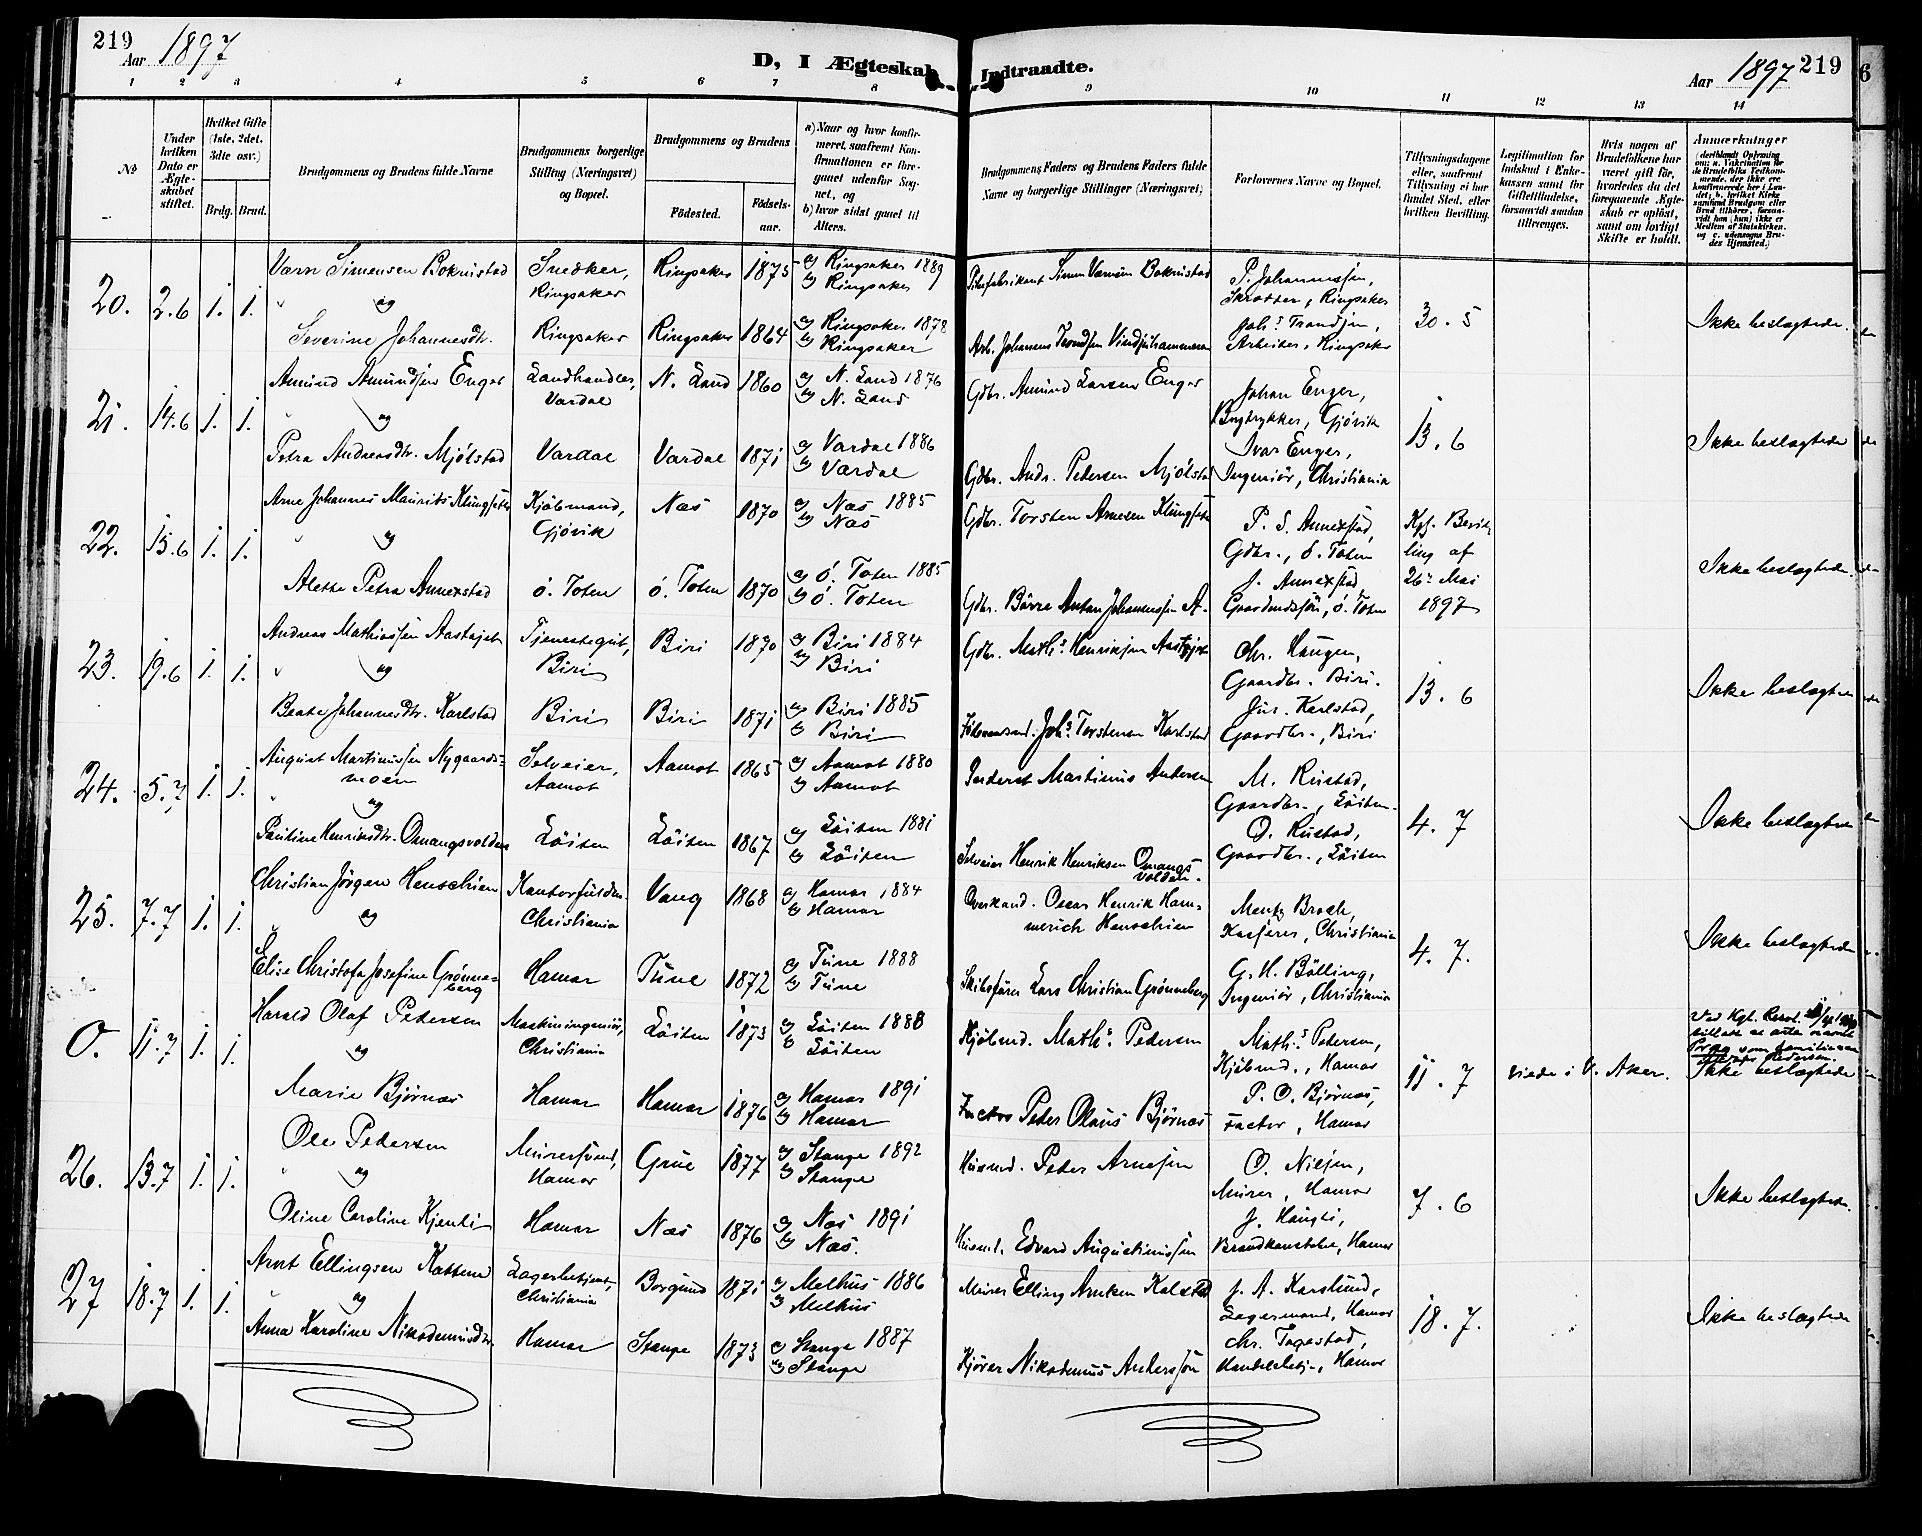 219
Aar 1897
D, I Ægteskab Indtraadte.
Aar 1897
219
6
1 2 3 4 5 6 7 8 9 10 11 12 13 14
No
Under hvilken Dato er Ægteskabet stiftet.
Hvilket Gifte (1ste, 2det, 3die osv.)
Brdg. Brud.
Brudgommens og Brudens fulde Navne
Brudgommens borgerlige Stilling (Næringsvei) og Bopæl.
Brudgommens og Brudens
Fødested.
Fødselsaar.
a) Naar og hvor konfirmeret, saafremt Konfirmationen er foregaaet udenfor Sognet, og
b) hvor sidst gaaet til Alters.
Brudgommens Faders og Brudens Faders fulde Navne og borgerlige Stillinger (Næringsvei)
Forlovernes Navne og Bopæl.
Tillysningsdagene eller, saafremt Tillysning ei har fundet Sted, efter hvilken Bevilling.
Legitimation for Indskud i Enkekassen samt for Giftetilladelse, forsaavidt saadan tiltrænges.
Hvis nogen af Brudefolkene har været gift før, hvorledes da det foregaaende Ægteskab er opløst, samt om lovligt Skifte er holdt.
Anmærkninger
20. 2.6 1. 1.
Varn Simensen Boknistad
Snedker, Ringsaker
Ringsaker 1875
a) Ringsaker 1889
b) Ringsaker
Simen Boknistad
P. Johannessen,
Ringsaker
30. 5
Ikke beslægtede.
og
Severine Johannesdtr.
Ringsaker
Ringsaker 1864
a) Ringsaker 1878
b) Ringsaker
Arb. Johannes
Joh.s Trondsen,
Arbeider, Ringsaker
21. 14.6 1. 1.
Amund Amundsen Enger
Landhandler, Vardal
N. Land 1860
a) N. Land 1876
b) N. Land
Gdbr. Amund Larsen Enger
Johan Enger,
Bogtrykker, Gjøvik
13. 6
Ikke beslægtede
og
Petra Andreasdtr. Mjølstad
Vardal
Vardal 1871
a) Vardal 1886
b) Vardal
Gdbr. Andr. Pedersen Mjølstad
Ivar Enger,
Ingeniør, Christiania
22. 15.6 1. 1.
Arne Johannes Maurits Klungseter
Kjøbmand, Gjøvik
Næs 1870
a) Næs 1885
b) Næs
Gdbr. Torsten Arnesen Klungseter
P. S. Annexstad,
Gdbr., Ø. Toten
Kgl. Bevilling af 26de Mai 1897
Ikke beslægtede.
og
Alette Petra Annexstad
Ø. Toten
Ø. Toten 1870
a) Ø. Toten 1885
b) Ø. Toten
Gdbr. Børre Anton Johannessen A-
J. Annexstad,
Gaardmdssøn, Ø. Toten
23. 19.6 1. 1.
Andreas Mathiassen
Tjenestegut, Biri
Biri 1870
a) Biri 1884
b) Biri
Gdbr. Math.s Henriksen
Chr. Haugen,
Gaardbr. Biri.
13. 6
Ikke beslægtede
og
Beate Johannesdtr. Karlstad
Biri
Biri 1871
a) Biri 1885
b) Biri
Joh.s Torstensen Karlstad
Karlstad,
Gaardbr., Biri
24. 5.7 1. 1.
August Martinussen Nygaardsmoen
Selveier, Aamot
Aamot 1865
a) Aamot 1880
b) Aamot
Inderst Martinus Andersen
M. Rustad,
Gaardbr., Løiten.
4. 7
Ikke beslægtede
og
Pauline Henriksdtr. Omangsvolden
Løiten
Løiten 1867
a) Løiten 1881
b) Løiten
Selveier Henrik Henriksen Omangsvolden.
O. Rustad,
Gaardbr., Løiten
25. 7.7 1. 1.
Christian Jørgen Henschien
Christiania
Vang 1868
a) Hamar 1884
b) Hamar
Oscar Henrik Hammerich Henschien
Mentz Broch,
Kasserer, Christiania
4. 7.
Ikke beslægtede
og
Elise Christofa Josefine Grønneberg
Hamar
Tune 1872
a) Tune 1888
b) Tune
Skibsfører Lars Christian Grønneberg
G. H. Bølling,
Ingeniør, Christiania
O. 11.7 1. 1.
Harald Olaf Pedersen
Maskiningeniør, Christiania
Løiten 1873
a) Løiten 1888
b) Løiten
Kjøbmd. Math.s Pedersen
Math.s Pedersen,
Kjøbmd., Hamar
11. 7
viede i V. Aker.
Ved Kgl. Resol.
Ikke beslægtede
og
Marie Bjørnås
Hamar
Hamar 1876
a) Hamar 1891
b) Hamar
Factor Peder Olaus Bjørnås
P. O. Bjørnås,
Factor, Hamar
26. 13.7 1. 1.
Ole Pedersen
Murersvend, Hamar
Grue 1877
a) Stange 1892
b) Stange
Husmd. Peder Arnesen
O. Nilsen,
Murer, Hamar
7. 6
Ikke beslægtede.
og
Oline Caroline Kjenli
Hamar
Næs 1876
a) Næs 1891
b) Næs.
Husmd. Edvard Augustinussen
J. Haugli,
Brandkonstabel, Hamar
27 18.7 1. 1.
Arnt Ellingsen Kattem
Lagerbetjent, Christiania
Borgund 1871
a) Melhus 1886
b) Melhus
Murer Elling
J. A. Karslund,
Lagermand, Hamar
18. 7.
Ikke beslægtede
og
Anna Karoline Nikodemusdtr.
Hamar
Stange 1873
a) Stange 1887
b) Stange
Kjører Nikodemus Anderssøn
Chr. Tagestad,
Handelsbetj., Hamar